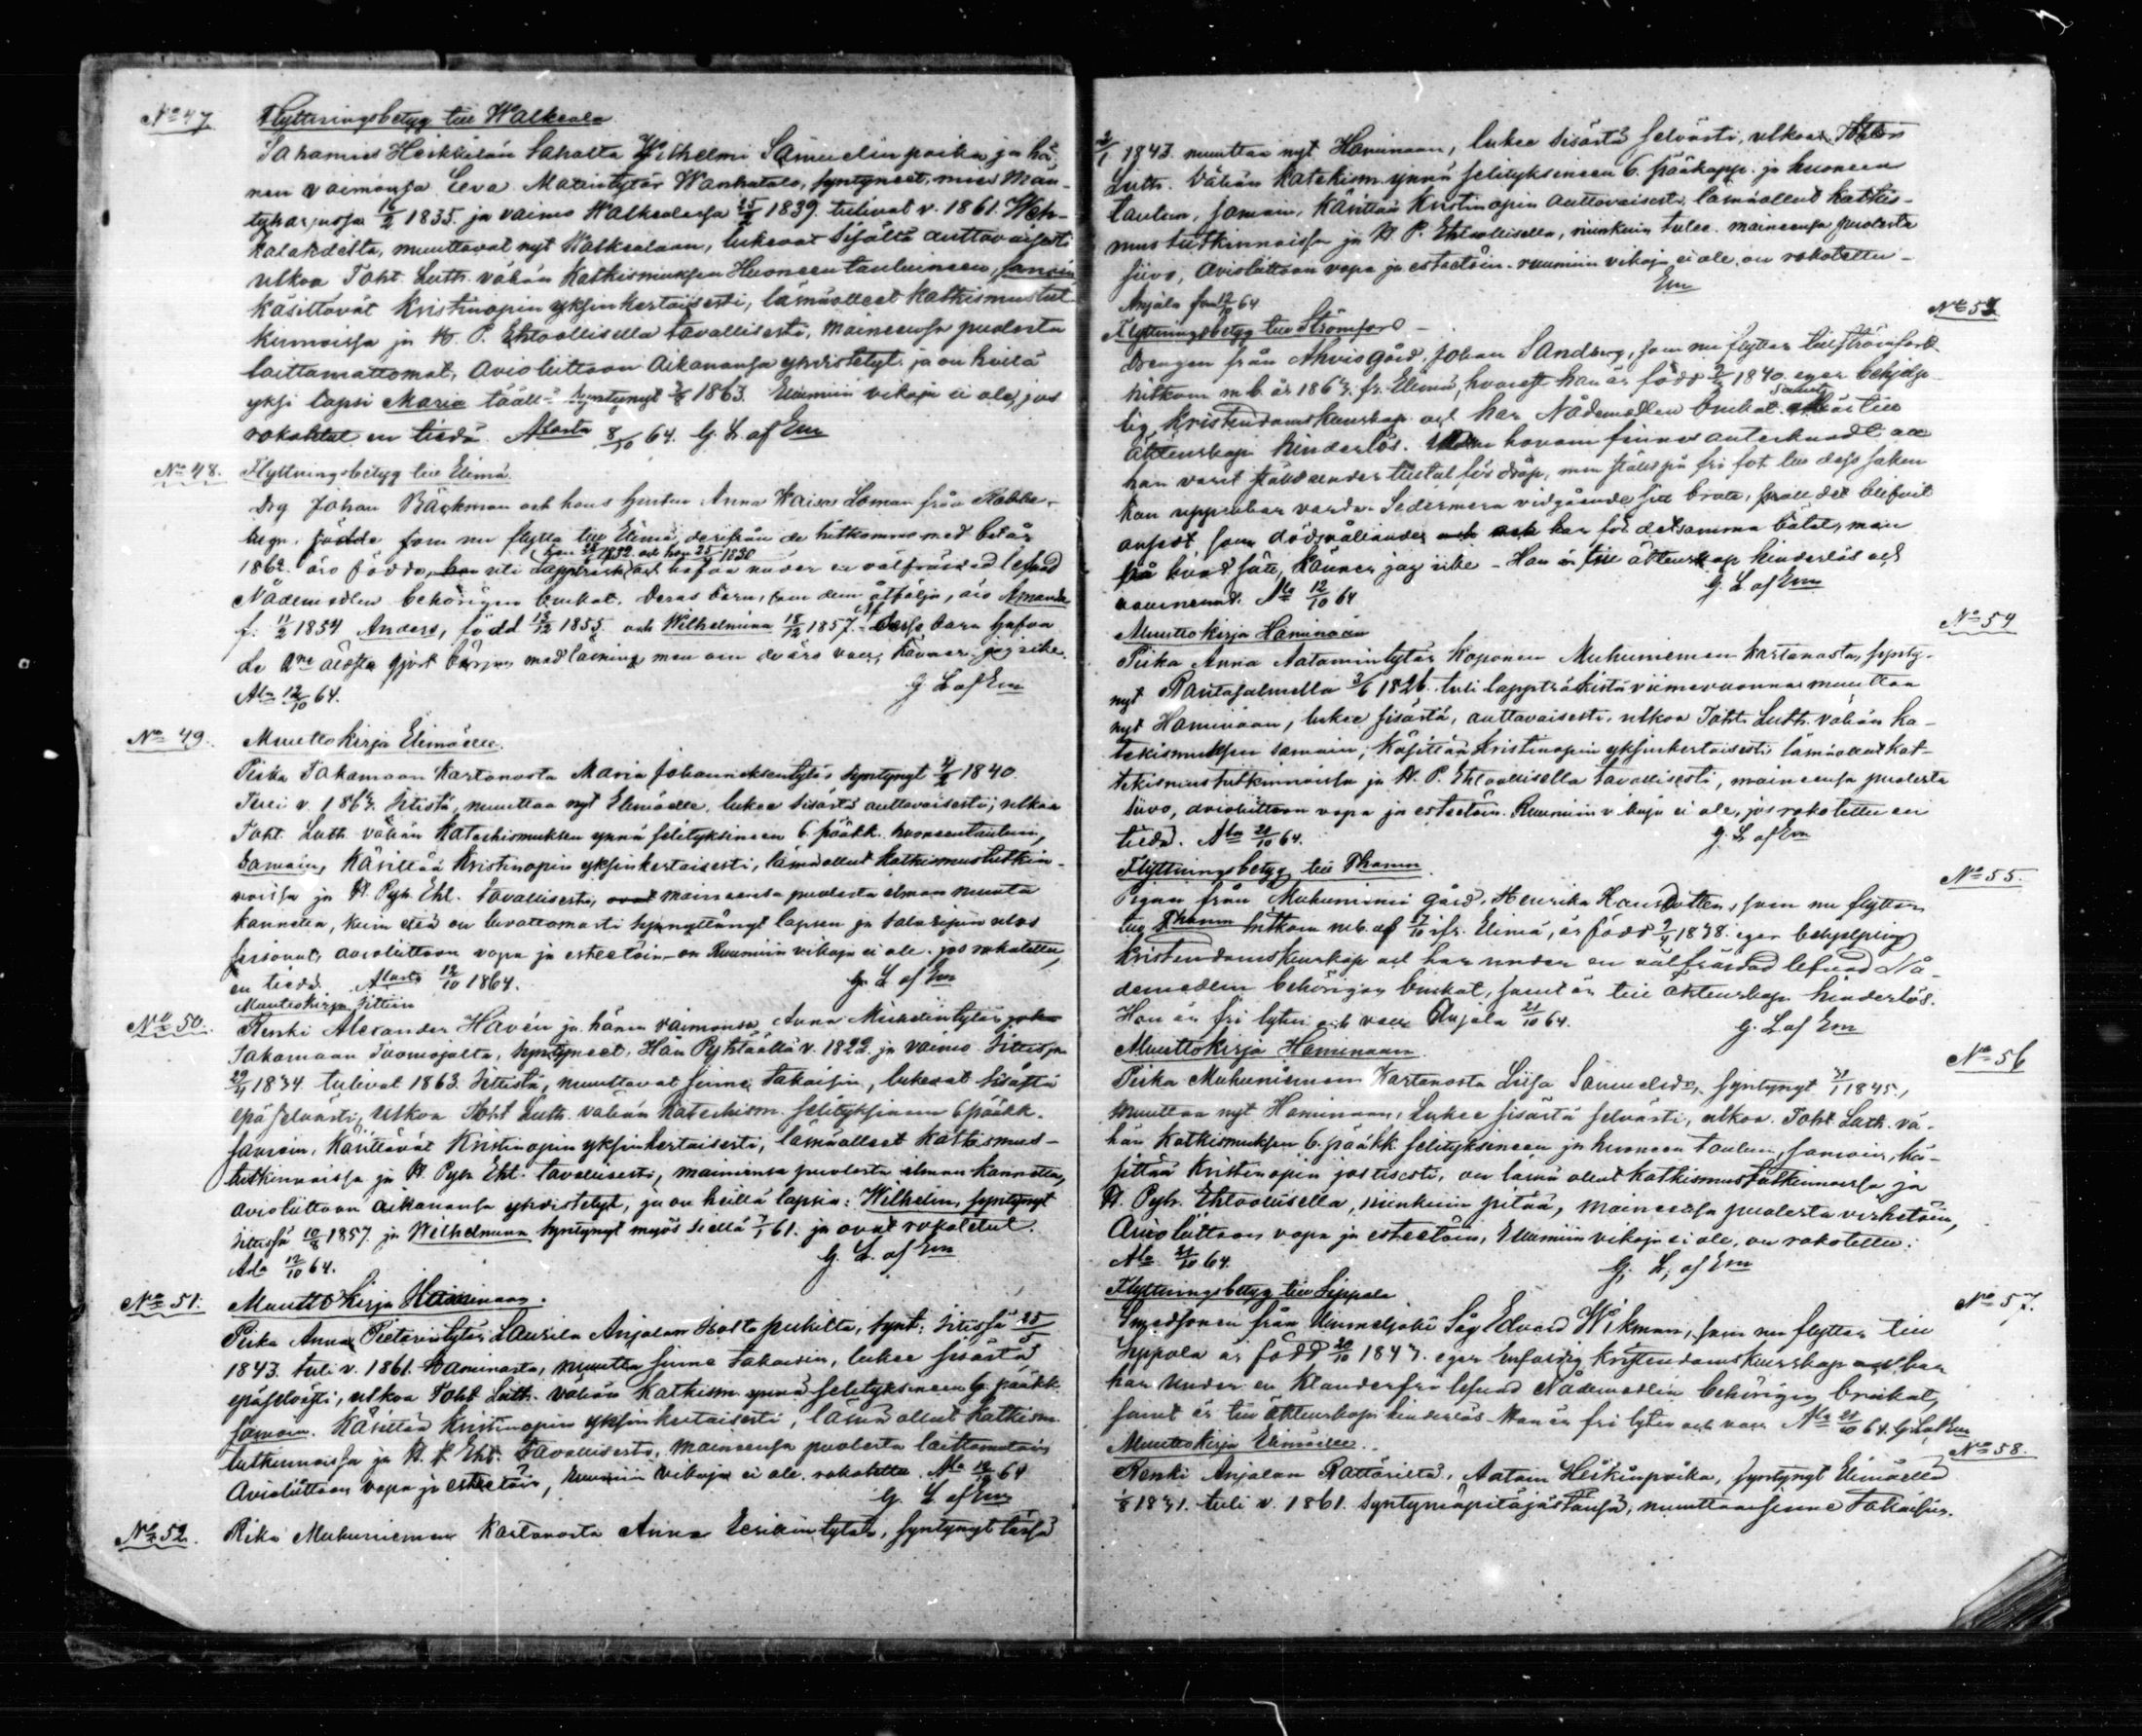 No 47 Flyttningsbetyg till Walkeala
Sahamies Heikkilän Sahalta Wilhelmi Samuelin poika ja hä-
nen vaimonsa Eeva Matintytär Wanhatalo, syntyneet, mies Män-
tyharjussa 16/2 1835 ja vaimo Walkealassa 25/ 1839. tulivat v. 1861. Weh-
kalahdelta, muuttavat nyt Walkealaan, lukevat sisältä auttavaisesti
ulkoa Toht. Luth. vähän Katkismuksen Huoneentauluineen, samoin
Käsittävät Kristinopin yksinkertaisesti, läsnäolleet Katkismustut-
kinnoissa ja H. P. Ehtoollisella tavallisesti, maineensa puolesta
laittamattomat, Avioliittoon Aikanansa yhdistetyt ja on heillä
yksi lapsi Maria tääll- syntynyt 1863. Ruumiin vikoja ei ole, jos
rokotetut en tiedä. Alasta 8/10 64. G. L. af Em
No 48. Flyttningsbetyg till Elimä.
Drg Johan Bäckman och hans hustru Anna Kaisa Loman från Rabbe-
lugn, födde som nu flytta till Elimä, derifrån de hitkommo med bet. år
han 28/ 1832 och hon 25/ 1830
1862. äro födda, han uti Lappträsk och hafva under en välfrejdad lefnad
Nådemedlen behörigen brukat. Deras barn, som dem åtfölja, äro Amanda
f. 11/2 1854 Anders, född 13/12 1855. och Wilhelmina 18/12 1857. Dessa barn hafva
de 2ne äldsta gjort början med läsning men om de äro vacc. känner jag icke.
Ala 12/10 64. G L af Em
No 49. Muuttokirja Elimäelle.
Piika Takamaan Kartanosta Maria Johanneksentytär syntynyt 4/2 1840.
Tuli v. 1863. Iitistä, muuttaa nyt Elimäelle, lukee sisästä auttavaisesti, ulkoa
Toht. Luth. vähän Katechismuksen ynnä selityksineen 6. pääkk. huoneentaulun,
samoin, Käsittää Kristinopin yksinkertaisesti, läsnäollut Katkismustutkin-
noissa ja H. Pyh. Eht. tavallisesti, maineensa puolesta ilman muuta
kannetta, kuin että on luvattomasti synnyttänyt lapsen ja
avioliittoon vapa ja esteetöin - on Ruumiin vikoja ei ole. jos rokotettu,
en tiedä. Alasta 12/10 1864. G. L af Em
Muuttokirja Iittiin
No 50. Renki Alexander Havén ja hänen vaimonsa Anna Mickelintytär
Takamaan Tuomojalta, syntyneet, Hän Pyhtäällä v. 1822 ja vaimo Iitissä
29/4 1834. tulivat 1863. Iitistä, muuttavat sinne takaisin, lukevat sisästä
epäselvästi, ulkoa Toht Luth. vähän Katechism. selityksineen 6 pääkk.
samoin, Käsittävät Kristinopin yksinkertaisesti, läsnäolleet Katkismus-
tutkinnoissa ja H. Pyh. Eht. tavallisesti, maineensa puolesta ilman kannetta,
avioliittoon aikanansa yhdistetyt, ja on heillä lapsia: Wilhelm, syntynyt
Iitissä 10/8 1857. ja Wilhelmiina syntynyt myös siellä 7/1 61. ja ovat rokotetut.
Ala 12/10 64. G. L. af Em
No 51. Muutto Kirja Haminaan.
Piika Anna Pietarintytär Laurila Anjalan Holtopukilta, synt: Iitissä 25/5
1843. tuli v. 1861. Haminasta, muutta sinne takaisin, lukee sisästä
epäselvästi, ulkoa Toht Luth. vähän Katkism. ynnä selityksineen 6. pääkk.
samoin. Käsittää Kristinopin yksinkertaisesti, läsnä ollut Katkism.
tutkinnoissa ja H. P. Eht. tavallisesti, maineensa puolesta laittamatoin
Avioliittoon vapa ja esteetöin, Ruumiin vikoja ei ole. rokotettu. Ala 12/10 64
G. L af Em
No 52. Piika Muhuniemen Kartanosta Anna Eerikintytär, syntynyt tässä
2/1 1843. muuttaa nyt Haminaan, lukee sisästä selvästi, ulkoa Toht.
Luth. Vähän Katekism. ynnä selityksineen 6. pääkapp. ja huoneen
taulun, samoin, Käsittää Kristinopin auttavaisesti, läsnäollut Katkis-
mustutkinnoissa ja H. P. Ehtoollisella, niinkuin tulee. maineensa puolesta
siivo, Avioliittoon vapa ja esteetöin. ruumiin vikoja ei ole. on rokotettu-
Anjala 12/10 64 Em
Flyttningsbetyg till Strömfors - No 53
Drengen från Ahvio gård, Johan Sandberg, som nu flyttar till Strömfors
hitkom m.b. år 1863. fr. Elimä, hvarest han är född 1840. eger behjelp-
lig Kristendomskunskap och har Nådemedlen brukat. samt är till
äktenskap hinderlös. Uti hvarom finnes antecknadt att
han varit ställd under tilltal för dråp, men ställes på fri fot till dess saken
kan uppenbar varda. Sedermera vidgående sitt brott, skall det blifvit
ansedt som dödsvållande och har för detsamma bötat, men
på hvad sätt, känner jag icke - Han är till äktenskap hinderlös och
vaccinerad. Ala 12/10 64 G. L af Em
Muutto kirja Haminaan No 54
Piika Anna Aatamintytär Koponen Muhuniemen kartanosta, synty-
nyt Rantasalmella 3/6 1826. tuli lappträskistä viimevuonna muuttaa
nyt Haminaan, lukee sisästä, auttavaisesti, ulkoa Toht. Luth. vähän ka-
tekismuksen samoin, Käsittää Kristinopin yksinkertaisesti, läsnäollut kat-
tekismustutkinnoissa ja H. P. Ehtoollisella tavallisesti, maineensa puolesta
siivo, avioliittoon vapa ja esteetöin. Ruumiin vikoja ei ole, jos rokotettu en
tiedä. Ala 21/10 64. G. L af Em
Flyttningsbetyg till Thamn. No 55.
Pigan från Muhuniemi gård, Henrika Hansdotter, som nu flyttar
till Fhamn hitkom m.b. af 17/10 fr. Elimä, är född 9/4 1838. eger behjelplig
Kristendomskunskap och har under en välfräjdad lefnad Nå-
demedlen behörigen brukat, samt är till äktenskap hinderlös.
Hon är fri lyten och vacc Anjala 21/10 64. G. L af Em
Muuttokirja Haminaan. No 56
Piika Muhuniemen Kartanosta Liisa Samuelsdr, syntynyt 1845.,
muuttaa nyt Haminaan, Lukee sisästä selvästi, ulkoa. Toht. Luth. vä-
hän Katkismuksen 6. pääkk selityksineen ja huoneen taulun, samoin, kä-
sittää Kristinopin jostisesti, on läsnä ollut Katkismustutkinnoissa ja
H. Pyh. Ehtoollisella, niinkuin pitää, maineensa puolesta virhetöin,
Avioliittoon vapa ja esteetöin, Ruumiin vikoja ei ole, on rokotettu.
Ala 21/10 64. G. L, af Em
Flyttningsbetyg till Sippola No 57.
Smedsonen från Ummeljoki Såg Edvard Wikman, som nu flyttar till
Sippola är född 20/10 1847. eger enfaldig Kristendomskunskap och har
har under en klanderfri lefnad Nådemedlen behörigen brukat,
samt är till äktenskap hinderlös. Han är fri lyten och vacc Ala 21/10 64. G. L af Em
Muuttokirja Elimäelle. No 58.
Renki Anjalan Rättäriltä, Aatam Heikinpoika, syntynyt Elimäellä
1/8 1831. tuli v. 1861. syntymäpitäjästänsä, muuttaa sinne Takaisin.